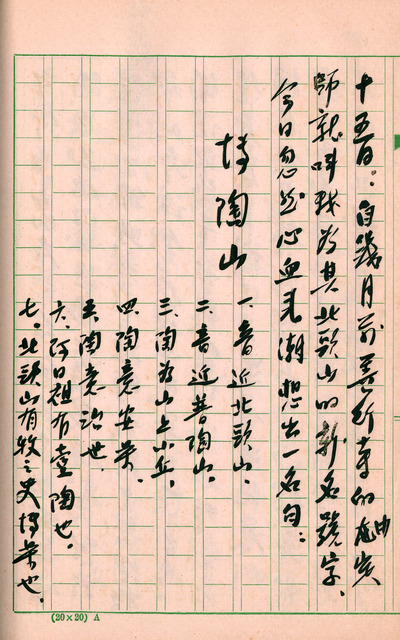 十五日：自幾月前善行寺的
師就叫我為其北頭山的新名號字、
今日忽然心血來潮想出一名曰：
博陶山
一、音近北頭山、
二、音近普陶山、
三、陶為山上小丘、
四、陶意安樂、
五、陶意治世、
六、阿口祖有臺陶也。
七、北頭山有牧之史博樂也、
(20×20) A